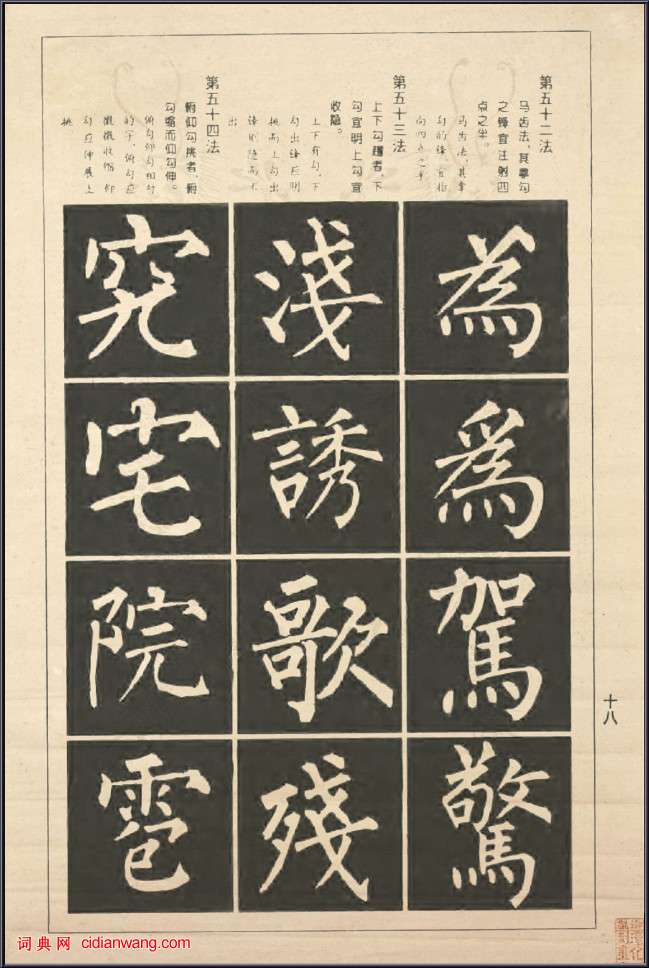 第五十二法
马齿法，其拏勾
之锋宜注射四
点之半。
马齿法，其拏
勾的锋，宜指
向四点之半
第五十三法
上下勾趯者，下
勾宜明上勾宜
收隐。
上下有勾，下
勾出锋应明
挑而上勾出
锋则隐而不
出
第五十四法
俯仰勾挑者，俯
勾略而仰勾伸。
俯勾仰勾相对
的字，俯勾应
微微收缩仰
勾应伸展上
挑
為爲駕驚
淺誘歌殘
究宅院雹
十八
词典网 cidianwang.com